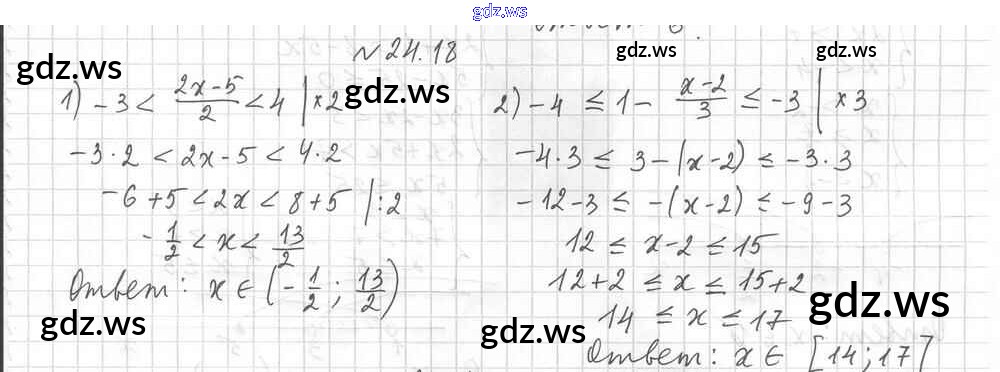 gdz.ws
N 24.18
gdz.ws
gdz.ws
gdz.ws
1) -3 < \frac{2x-5}{2} < 4 | ×2
gdz.ws
-3·2 < 2x-5 < 4·2
-6+5 < 2x < 8+5 | :2
-\frac{1}{2} < x < \frac{13}{2}
Ответ: x ∈ (-\frac{1}{2}; \frac{13}{2})
gdz.ws
2) -4 ≤ 1 - \frac{x-2}{3} ≤ -3 | ×3
-4·3 ≤ 3-(x-2) ≤ -3·3
-12-3 ≤ -(x-2) ≤ -9-3
12 ≤ x-2 ≤ 15
12+2 ≤ x ≤ 15+2
14 ≤ x ≤ 17
gdz.ws
gdz.ws
Ответ: x ∈ [14;17]